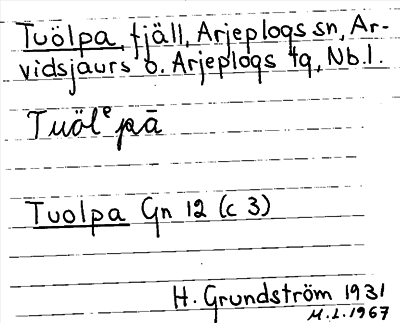 Tuölpa, fjäll, Arjeplogs sn, Ar-
vidsjaurs o. Arjeplogs tg, Nb.l.
Tuölᵉpā
Tuolpa Gn 12 (c 3)
H. Grundström 1931
M.L. 1967